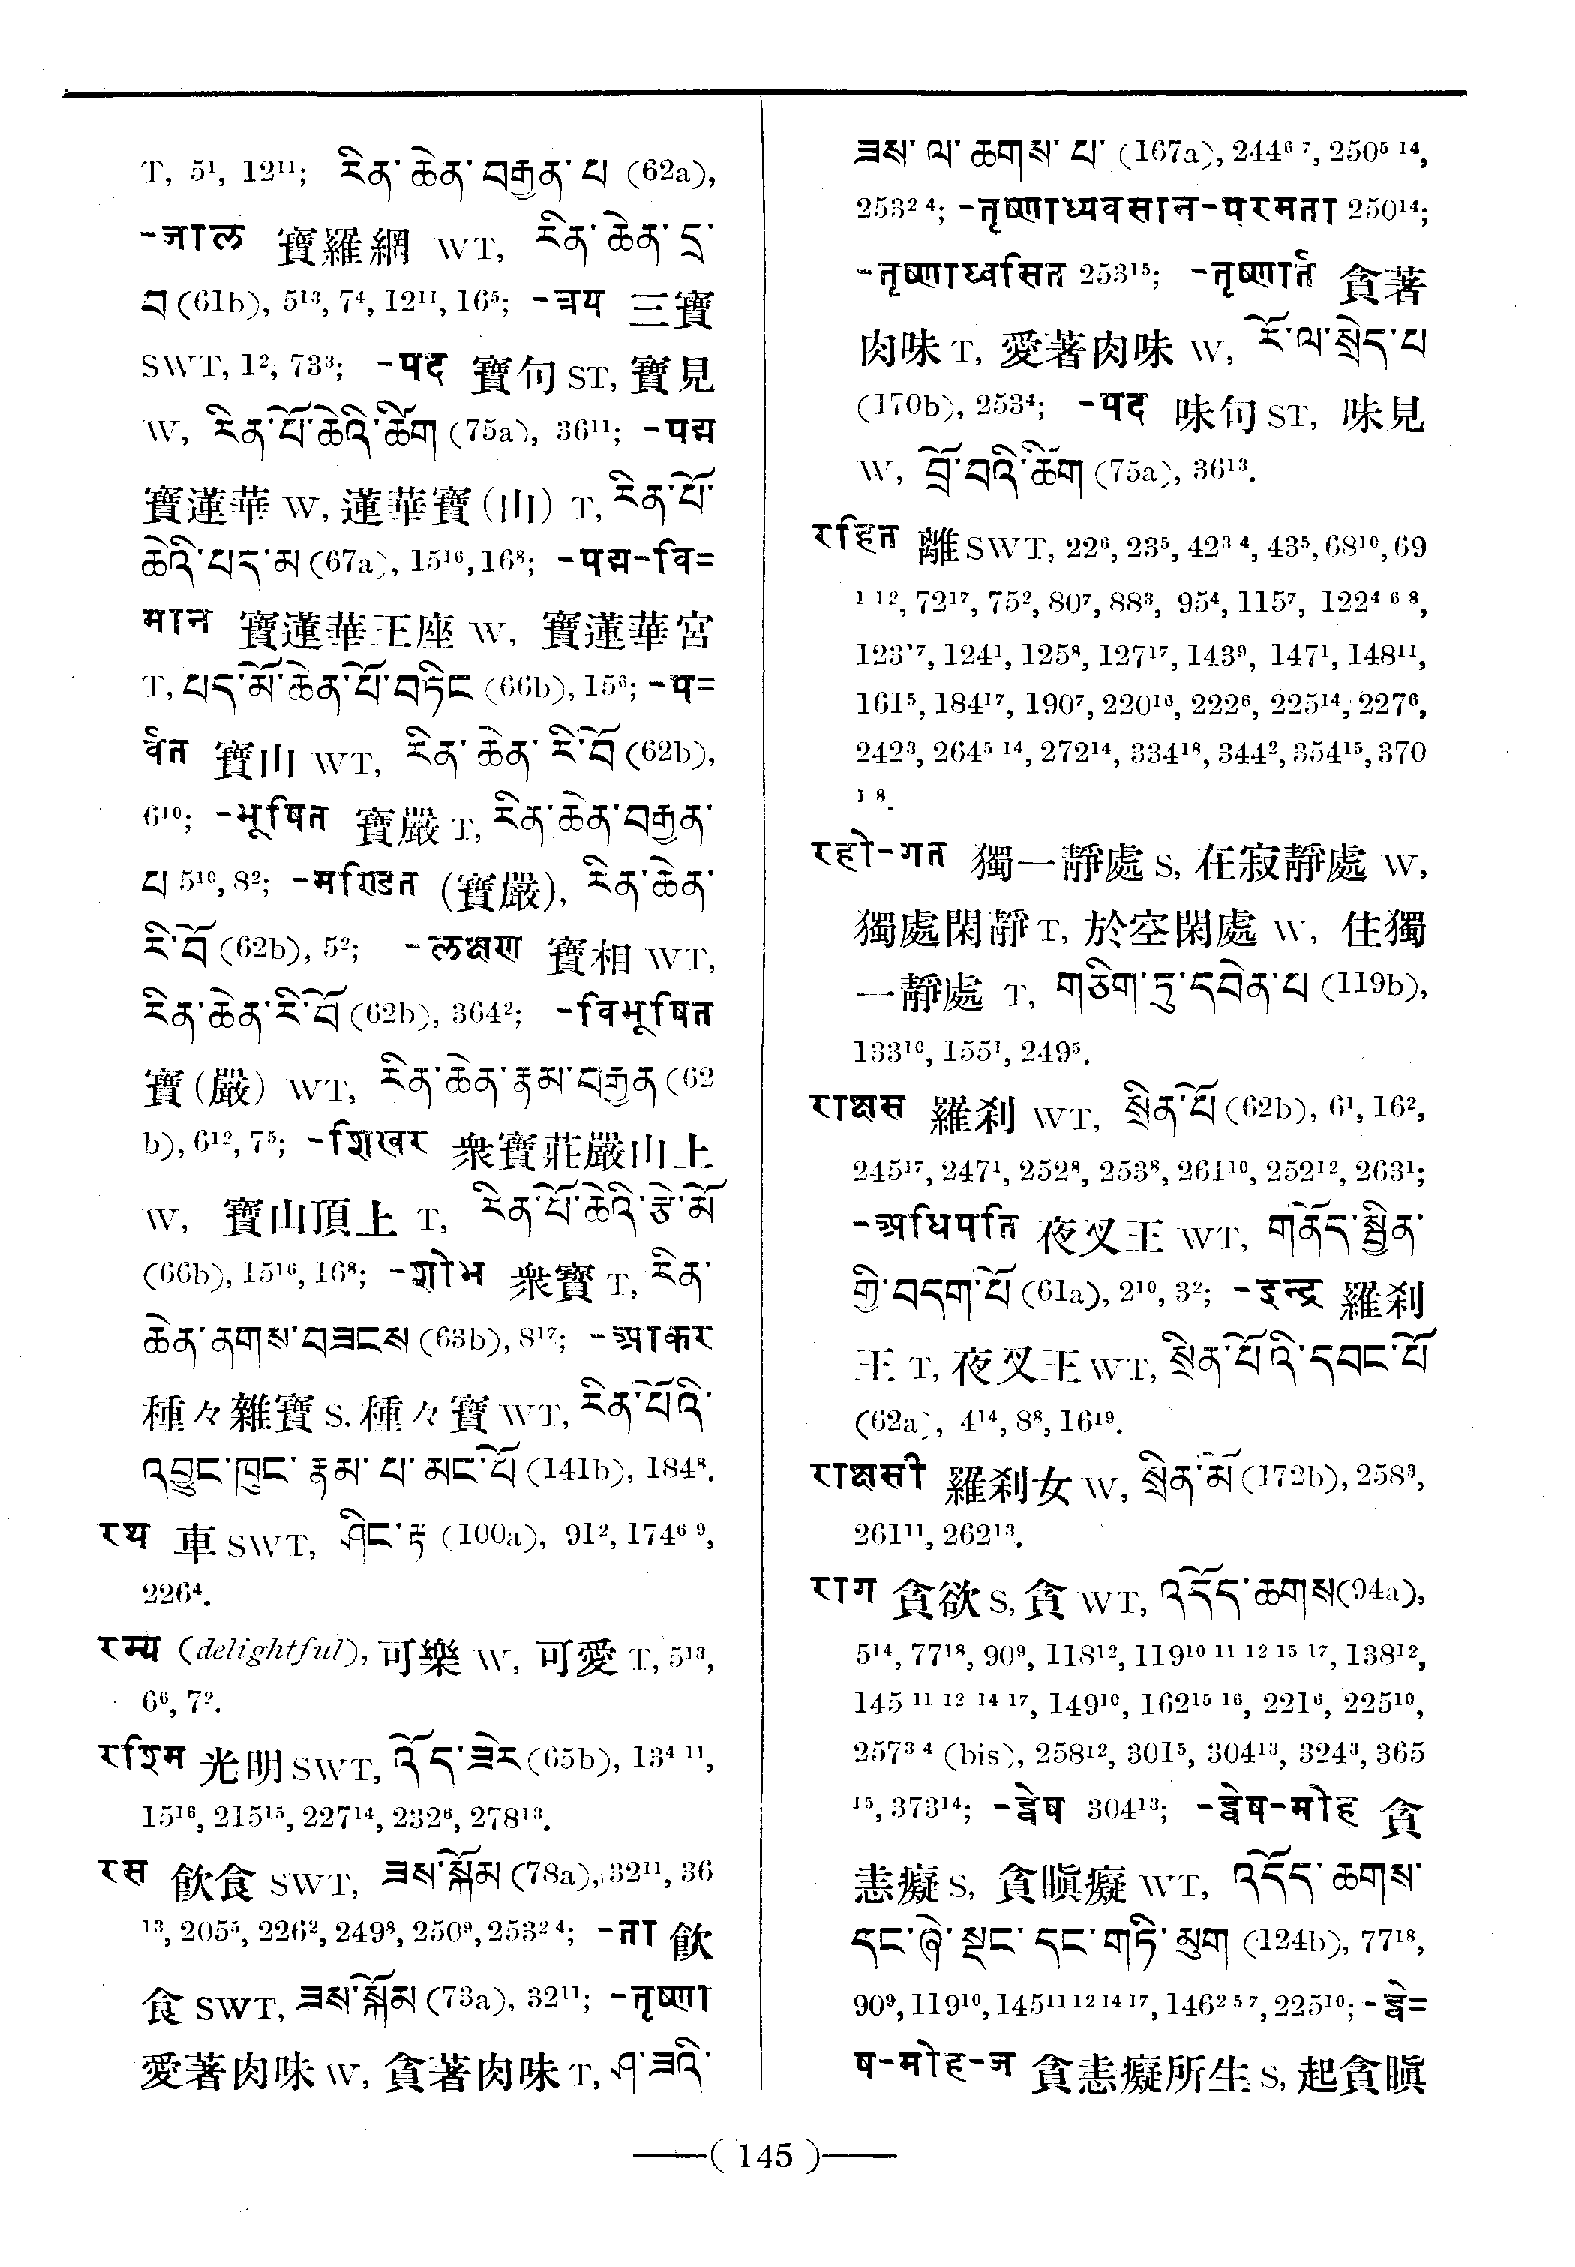 T, 5¹, 12¹¹; རིན་ཆེན་བརྒྱན་པ (62a),
-जाल 寶羅網 WT, རིན་ཆེན་དྲ་
བ (61b), 5¹³, 7⁴, 12¹¹, 16⁵; -त्रय 三寶
SWT, 1², 73³; -पद 寶句 ST, 寶見
W, རིན་པོ་ཆེའི་ཚིག (75a), 36¹¹; -पद्म
寶蓮華 W, 蓮華寶(山) T, རིན་པོ་
ཆེའི་པད་མ (67a), 15¹⁶, 16⁸; -पद्म-वि=
मान 寶蓮華王座 W, 寶蓮華宮
T, པད་མོ་ཆེན་པོ་བཏིང (66b), 15⁶; -प=
र्वत 寶山 WT, རིན་ཆེན་རི་བོ (62b),
6¹⁰; -भूषित 寶嚴 T, རིན་ཆེན་བརྒྱན་
པ 5¹⁰, 8²; -मण्डित (寶嚴), རིན་ཆེན་
རི་བོ (62b), 5²; -लक्षण 寶相 WT,
རིན་ཆེན་རི་བོ (62b), 364²; -विभूषित
寶(嚴) WT, རིན་ཆེན་རྣམ་བརྒྱན (62
b), 6¹², 7⁵; -शिखर 衆寶莊嚴山上
W, 寶山頂上 T, རིན་པོ་ཆེའི་རྩེ་མོ
(66b), 15¹⁶, 16⁸; -शोभ 衆寶 T, རིན་
ཆེན་ནགས་བཟངས (63b), 8¹⁷; -आकर
種々雜寶 S, 種々寶 WT, རིན་པོའི་
འབྱུང་ཁུང་རྣམ་པ་མང་པོ (141b), 184⁸.
रथ 車 SWT, ཤིང་རྟ (100a), 91², 174⁶ ⁹,
226⁴.
रम्य (delightful), 可樂 W, 可愛 T, 5¹³,
6⁶, 7².
रश्मि 光明 SWT, འོད་ཟེར (65b), 13⁴ ¹¹,
15¹⁶, 215¹⁵, 227¹⁴, 232⁶, 278¹³.
रस 飲食 SWT, ཟས་སྐོམ (78a), 32¹¹, 36
¹³, 205⁵, 226², 249⁸, 250⁹, 253² ⁴; -ता 飲
食 SWT, ཟས་སྐོམ (73a), 32¹¹; -तृष्णा
愛著肉味 W, 貪著肉味 T, ཤ་ཟའི་
ཟས་ལ་ཆགས་པ་ (167a), 244⁶ ⁷, 250⁵ ¹⁴,
253² ⁴; -तृष्णाध्यवसान-परमता 250¹⁴;
-तृष्णाध्वसित 253¹⁵; -तृष्णार्त 貪著
肉味 T, 愛著肉味 W, རོ་ལ་སྲེད་པ
(170b), 253⁴; -पद 味句 ST, 味見
W, བྲོ་བའི་ཚིག (75a), 36¹³.
रहित 離 SWT, 22⁶, 23⁵, 42³ ⁴, 43⁵, 68¹⁰, 69
¹ ¹², 72¹⁷, 75², 80⁷, 88³, 95⁴, 115⁷, 122⁴ ⁶ ⁸,
123’⁷, 124¹, 125⁸, 127¹⁷, 143⁹, 147¹, 148¹¹,
161⁵, 184¹⁷, 190⁷, 220¹⁶, 222⁶, 225¹⁴, 227⁶,
242³, 264⁵ ¹⁴, 272¹⁴, 334¹⁸, 344², 354¹⁵, 370
¹ ⁸.
रहो-गत 獨一靜處 S, 在寂靜處 W,
獨處閑靜 T, 於空閑處 W, 住獨
一靜處 T, གཅིག་ཏུ་དབེན་པ (119b),
133¹⁰, 155¹, 249⁵.
राक्षस 羅刹 WT, སྲིན་པོ (62b), 6¹, 16²,
245¹⁷, 247¹, 252⁸, 253⁸, 261¹⁰, 252¹², 263¹;
-अधिपति 夜叉王 WT, གནོད་སྦྱིན་
གྱི་བདག་པོ (61a), 2¹⁰, 3²; -इन्द्र 羅刹
王 T, 夜叉王 WT, སྲིན་པོའི་དབང་པོ
(62a), 4¹⁴, 8⁸, 16¹⁹.
राक्षसी 羅刹女 W, སྲིན་མོ (172b), 258⁹,
261¹¹, 262¹³.
राग 貪欲 S, 貪 WT, འདོད་ཆགས (94a),
5¹⁴, 77¹⁸, 90⁹, 118¹², 119¹⁰ ¹¹ ¹² ¹⁵ ¹⁷, 138¹²,
145 ¹¹ ¹² ¹⁴ ¹⁷, 149¹⁰, 162¹⁵ ¹⁶, 221⁶, 225¹⁰,
257³ ⁴ (bis), 258¹², 301⁵, 304¹³, 324³, 365
¹⁵, 373¹⁴; -द्वेष 304¹³; -द्वेष-मोह 貪
恚癡 S, 貪瞋癡 WT, འདོད་ཆགས་
དང་ཞེ་སྡང་དང་གཏི་མུག (124b), 77¹⁸,
90⁹, 119¹⁰, 145¹¹ ¹² ¹⁴ ¹⁷, 146² ⁵ ⁷, 225¹⁰; -द्वे=
ष-मोह-ज 貪恚癡所生 S, 起貪瞋
—( 145 )—